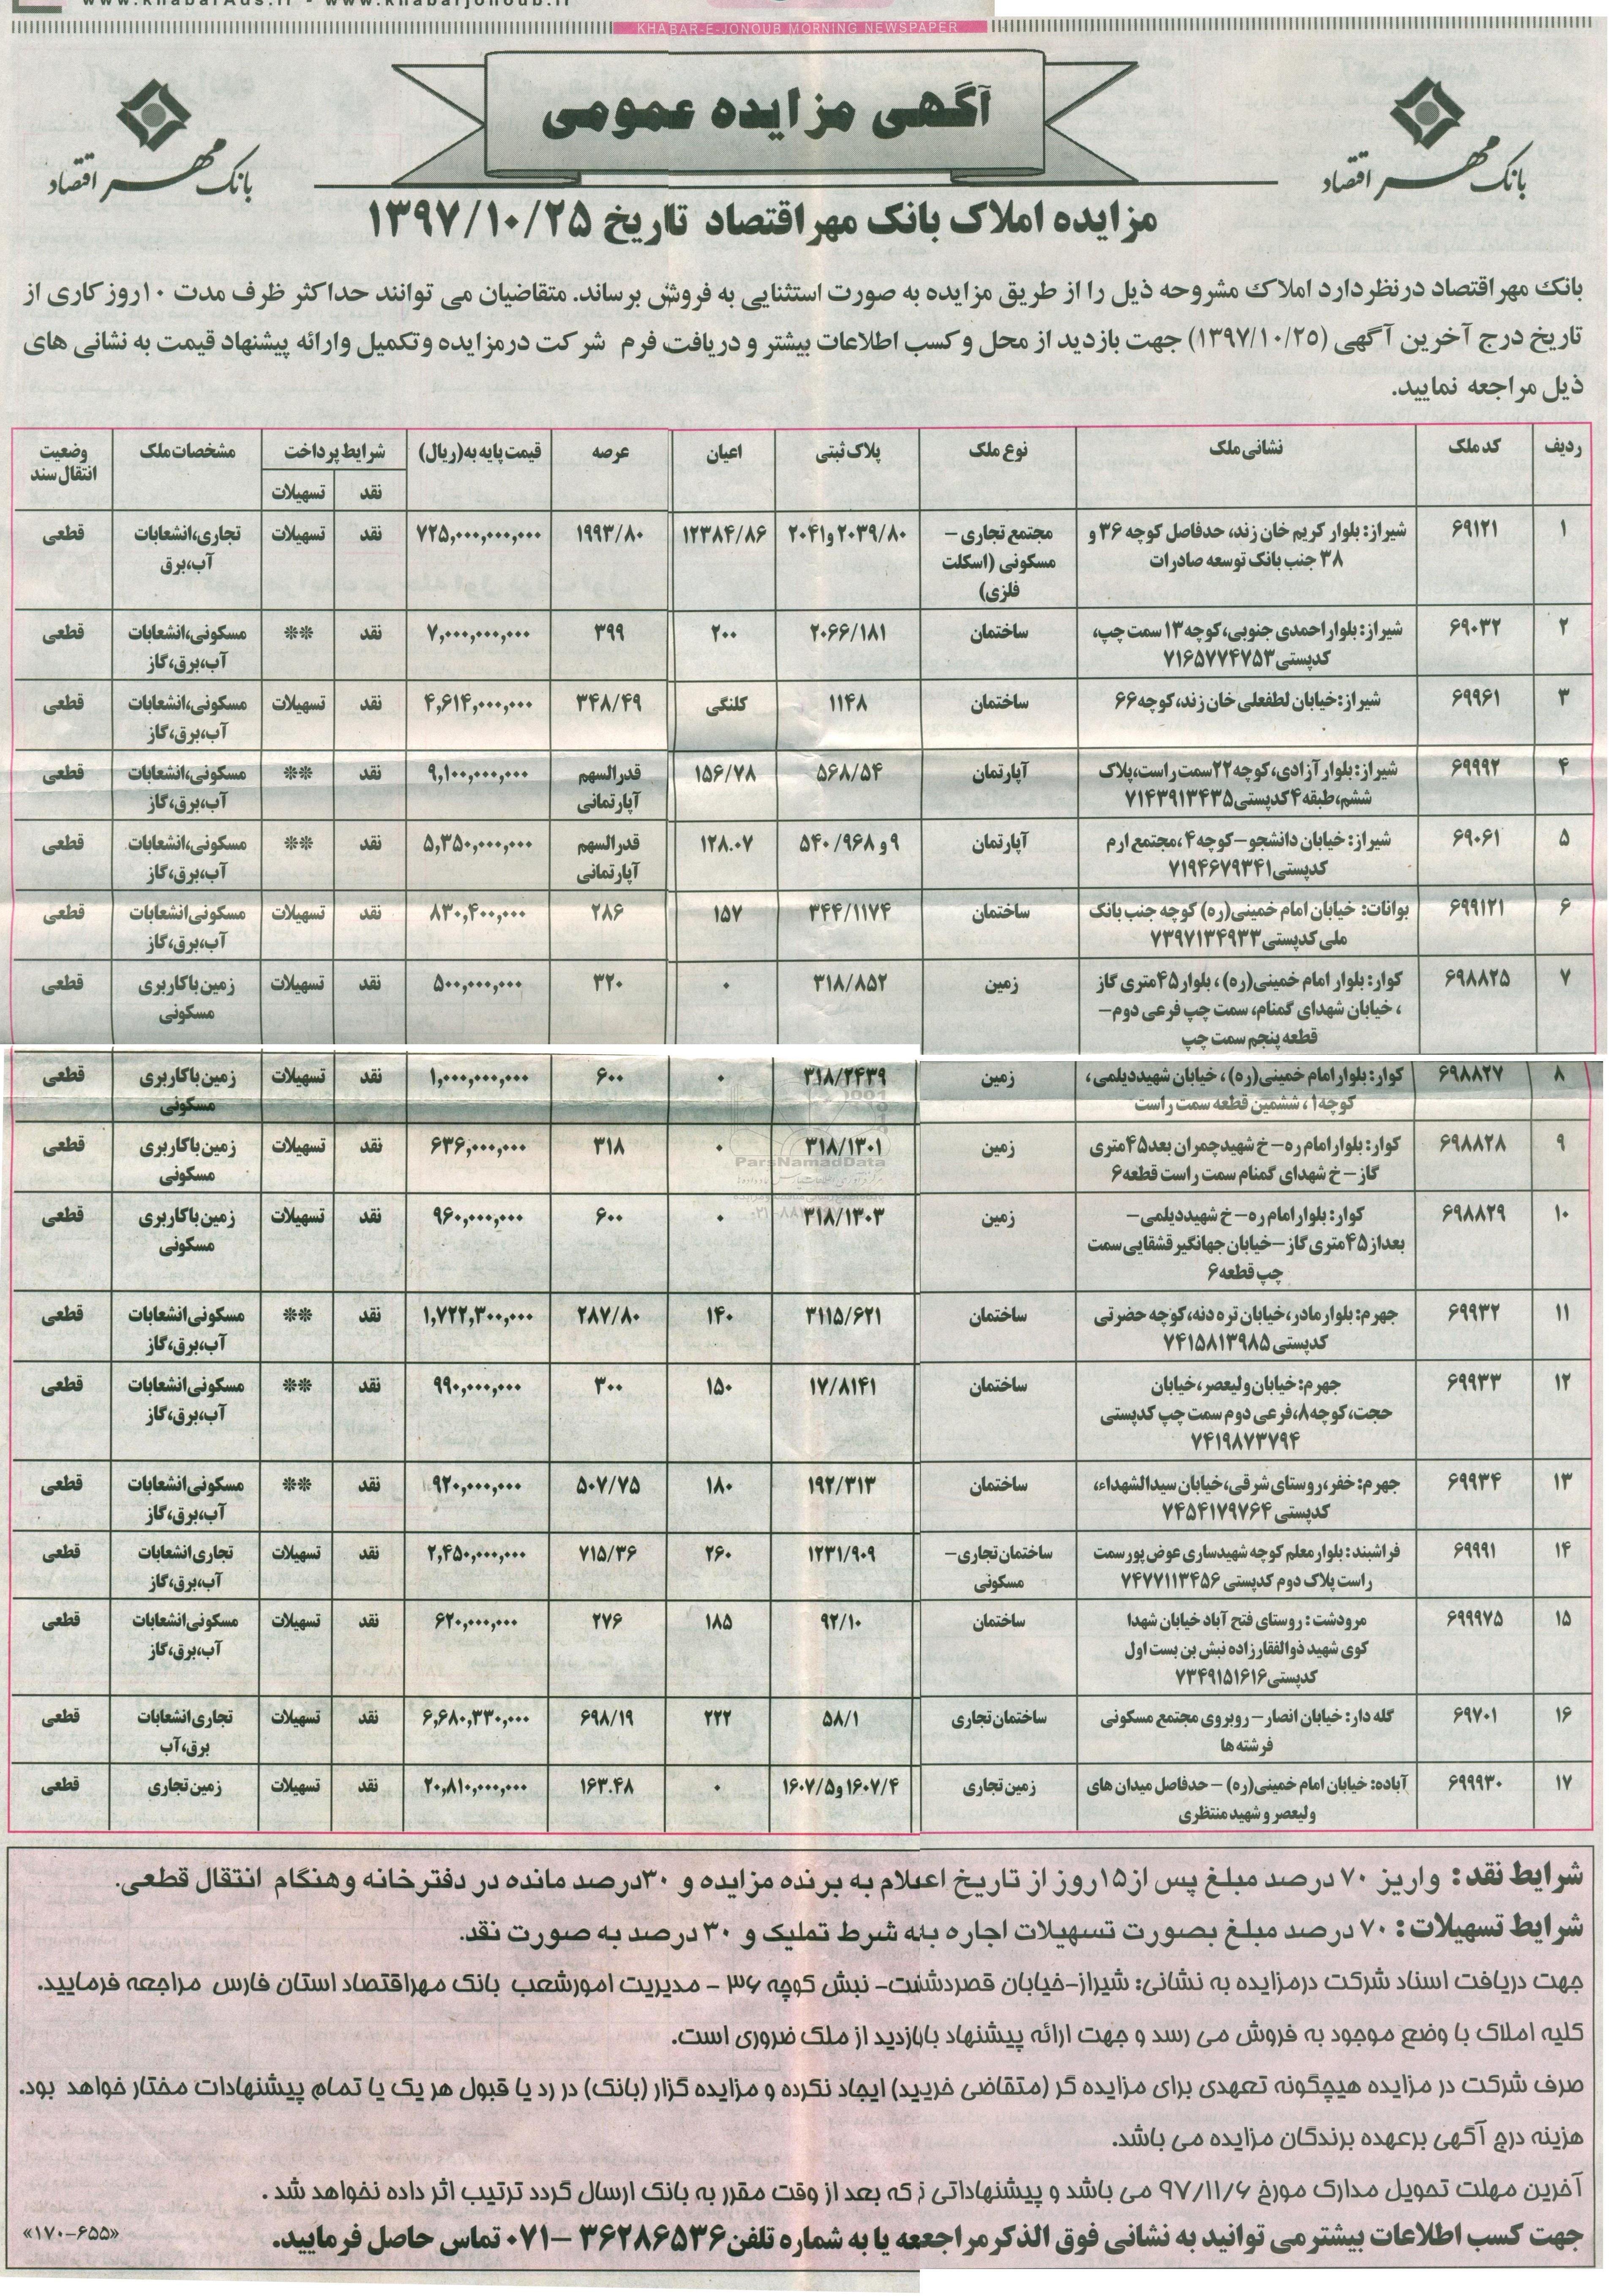 www.khabarAds.ir - www.khabarjonoub.ir
KHABAR-E-JONOUB MORNING NEWSPAPER
آگهی مزایده عمومی
بانک مهر اقتصاد
بانک مهر اقتصاد
مزایده املاک بانک مهر اقتصاد تاریخ ۱۳۹۷/۱۰/۲۵
بانک مهر اقتصاد در نظر دارد املاک مشروحه ذیل را از طریق مزایده به صورت استثنایی به فروش برساند. متقاضیان می توانند حداکثر ظرف مدت ۱۰ روز کاری از
تاریخ درج آخرین آگهی (۱۳۹۷/۱۰/۲۵) جهت بازدید از محل و کسب اطلاعات بیشتر و دریافت فرم شرکت در مزایده و تکمیل و ارائه پیشنهاد قیمت به نشانی های
ذیل مراجعه نمایید.
ردیف کد ملک نشانی ملک نوع ملک پلاک ثبتی اعیان عرصه قیمت پایه به (ریال) شرایط پرداخت مشخصات ملک وضعیت انتقال سند
نقد تسهیلات
۱ ۶۹۱۲۱ شیراز: بلوار کریم خان زند، حدفاصل کوچه ۳۶ و ۳۸ جنب بانک توسعه صادرات مجتمع تجاری – مسکونی (اسکلت فلزی) ۲۰۳۹/۸۰ و ۲۰۴۱ ۱۲۳۸۴/۸۶ ۱۹۹۳/۸۰ ۷۲۵,۰۰۰,۰۰۰,۰۰۰ نقد تسهیلات تجاری،انشعابات آب،برق قطعی
۲ ۶۹۰۳۲ شیراز: بلوار احمدی جنوبی، کوچه ۱۳ سمت چپ، کدپستی ۷۱۶۵۷۷۴۷۵۳ ساختمان ۲۰۶۶/۱۸۱ ۲۰۰ ۳۹۹ ۷,۰۰۰,۰۰۰,۰۰۰ نقد ** مسکونی،انشعابات آب،برق،گاز قطعی
۳ ۶۹۹۶۱ شیراز: خیابان لطفعلی خان زند، کوچه ۶۶ ساختمان ۱۱۴۸ کلنگی ۳۴۸/۴۹ ۴,۶۱۴,۰۰۰,۰۰۰ نقد تسهیلات مسکونی،انشعابات آب،برق،گاز قطعی
۴ ۶۹۹۹۲ شیراز: بلوار آزادی، کوچه ۲۲ سمت راست، پلاک ششم، طبقه ۴ کدپستی ۷۱۴۳۹۱۳۴۳۵ آپارتمان ۵۶۸/۵۴ ۱۵۶/۷۸ قدرالسهم آپارتمانی ۹,۱۰۰,۰۰۰,۰۰۰ نقد ** مسکونی،انشعابات آب،برق،گاز قطعی
۵ ۶۹۰۶۱ شیراز: خیابان دانشجو – کوچه ۴، مجتمع ارم کدپستی ۷۱۹۴۶۷۹۳۴۱ آپارتمان ۹ و ۵۴۰/۹۶۸ ۱۲۸.۰۷ قدرالسهم آپارتمانی ۵,۳۵۰,۰۰۰,۰۰۰ نقد ** مسکونی،انشعابات آب،برق،گاز قطعی
۶ ۶۹۹۱۲۱ بوانات: خیابان امام خمینی(ره) کوچه جنب بانک ملی کدپستی ۷۳۹۷۱۳۴۹۳۳ ساختمان ۳۴۴/۱۱۷۴ ۱۵۷ ۲۸۶ ۸۳۰,۴۰۰,۰۰۰ نقد تسهیلات مسکونی انشعابات آب،برق،گاز قطعی
۷ ۶۹۸۸۲۵ کوار: بلوار امام خمینی(ره)، بلوار ۴۵متری گاز ، خیابان شهدای گمنام، سمت چپ فرعی دوم – قطعه پنجم سمت چپ زمین ۳۱۸/۸۵۲ ۰ ۳۲۰ ۵۰۰,۰۰۰,۰۰۰ نقد تسهیلات زمین با کاربری مسکونی قطعی
۸ ۶۹۸۸۲۷ کوار: بلوار امام خمینی(ره)، خیابان شهید دیلمی، کوچه ۱، ششمین قطعه سمت راست زمین ۳۱۸/۲۴۳۹ ۰ ۶۰۰ ۱,۰۰۰,۰۰۰,۰۰۰ نقد تسهیلات زمین با کاربری مسکونی قطعی
۹ ۶۹۸۸۲۸ کوار: بلوار امام ره – خ شهید چمران بعد ۴۵متری گاز – خ شهدای گمنام سمت راست قطعه ۶ زمین ۳۱۸/۱۳۰۱ ۰ ۳۱۸ ۶۳۶,۰۰۰,۰۰۰ نقد تسهیلات زمین با کاربری مسکونی قطعی
ParsNamadData
۱۰ ۶۹۸۸۲۹ کوار: بلوار امام ره – خ شهید دیلمی – بعد از ۴۵متری گاز – خیابان جهانگیر قشقایی سمت چپ قطعه ۶ زمین ۳۱۸/۱۳۰۳ ۰ ۶۰۰ ۹۶۰,۰۰۰,۰۰۰ نقد تسهیلات زمین با کاربری مسکونی قطعی
۱۱ ۶۹۹۳۲ جهرم: بلوار مادر، خیابان تره دنه، کوچه حضرتی کدپستی ۷۴۱۵۸۱۳۹۸۵ ساختمان ۳۱۱۵/۶۲۱ ۱۴۰ ۲۸۷/۸۰ ۱,۷۲۲,۳۰۰,۰۰۰ نقد ** مسکونی انشعابات آب،برق،گاز قطعی
۱۲ ۶۹۹۳۳ جهرم: خیابان ولیعصر، خیابان حجت، کوچه ۸، فرعی دوم سمت چپ کدپستی ۷۴۱۹۸۷۳۷۹۴ ساختمان ۱۷/۸۱۴۱ ۱۵۰ ۳۰۰ ۹۹۰,۰۰۰,۰۰۰ نقد ** مسکونی انشعابات آب،برق،گاز قطعی
۱۳ ۶۹۹۳۴ جهرم: خفر، روستای شرقی، خیابان سیدالشهداء، کدپستی ۷۴۵۴۱۷۹۷۶۴ ساختمان ۱۹۲/۳۱۳ ۱۸۰ ۵۰۷/۷۵ ۹۲۰,۰۰۰,۰۰۰ نقد ** مسکونی انشعابات آب،برق،گاز قطعی
۱۴ ۶۹۹۹۱ فراشبند: بلوار معلم کوچه شهید ساری عوض پور سمت راست پلاک دوم کدپستی ۷۴۷۷۱۱۳۴۵۶ ساختمان تجاری – مسکونی ۱۲۳۱/۹۰۹ ۲۶۰ ۷۱۵/۳۶ ۲,۴۵۰,۰۰۰,۰۰۰ نقد تسهیلات تجاری انشعابات آب،برق،گاز قطعی
۱۵ ۶۹۹۹۷۵ مرودشت: روستای فتح آباد خیابان شهدا کوی شهید ذوالفقارزاده نبش بن بست اول کدپستی ۷۳۴۹۱۵۱۶۱۶ ساختمان ۹۲/۱۰ ۱۸۵ ۲۷۶ ۶۲۰,۰۰۰,۰۰۰ نقد تسهیلات مسکونی انشعابات آب،برق،گاز قطعی
۱۶ ۶۹۷۰۱ گله دار: خیابان انصار – روبروی مجتمع مسکونی فرشته ها ساختمان تجاری ۵۸/۱ ۲۲۲ ۶۹۸/۱۹ ۶,۶۸۰,۳۳۰,۰۰۰ نقد تسهیلات تجاری انشعابات برق،آب قطعی
۱۷ ۶۹۹۹۳۰ آباده: خیابان امام خمینی(ره) – حدفاصل میدان های ولیعصر و شهید منتظری زمین تجاری ۱۶۰۷/۴ و ۱۶۰۷/۵ ۰ ۱۶۳.۴۸ ۲۰,۸۱۰,۰۰۰,۰۰۰ نقد تسهیلات زمین تجاری قطعی
شرایط نقد: واریز ۷۰ درصد مبلغ پس از ۱۵ روز از تاریخ اعلام به برنده مزایده و ۳۰ درصد مانده در دفترخانه و هنگام انتقال قطعی.
شرایط تسهیلات: ۷۰ درصد مبلغ بصورت تسهیلات اجاره به شرط تملیک و ۳۰ درصد به صورت نقد.
جهت دریافت اسناد شرکت در مزایده به نشانی: شیراز-خیابان قصردشت- نبش کوچه ۳۶ - مدیریت امور شعب بانک مهر اقتصاد استان فارس مراجعه فرمایید.
کلیه املاک با وضع موجود به فروش می رسد و جهت ارائه پیشنهاد بازدید از ملک ضروری است.
صرف شرکت در مزایده هیچگونه تعهدی برای مزایده گر (متقاضی خرید) ایجاد نکرده و مزایده گزار (بانک) در رد یا قبول هر یک یا تمام پیشنهادات مختار خواهد بود.
هزینه درج آگهی برعهده برندگان مزایده می باشد.
آخرین مهلت تحویل مدارک مورخ ۹۷/۱۱/۶ می باشد و پیشنهاداتی که بعد از وقت مقرر به بانک ارسال گردد ترتیب اثر داده نخواهد شد.
جهت کسب اطلاعات بیشتر می توانید به نشانی فوق الذکر مراجعه یا به شماره تلفن ۳۶۲۸۶۵۳۶ – ۰۷۱ تماس حاصل فرمایید.
«۱۷۰-۶۵۵»